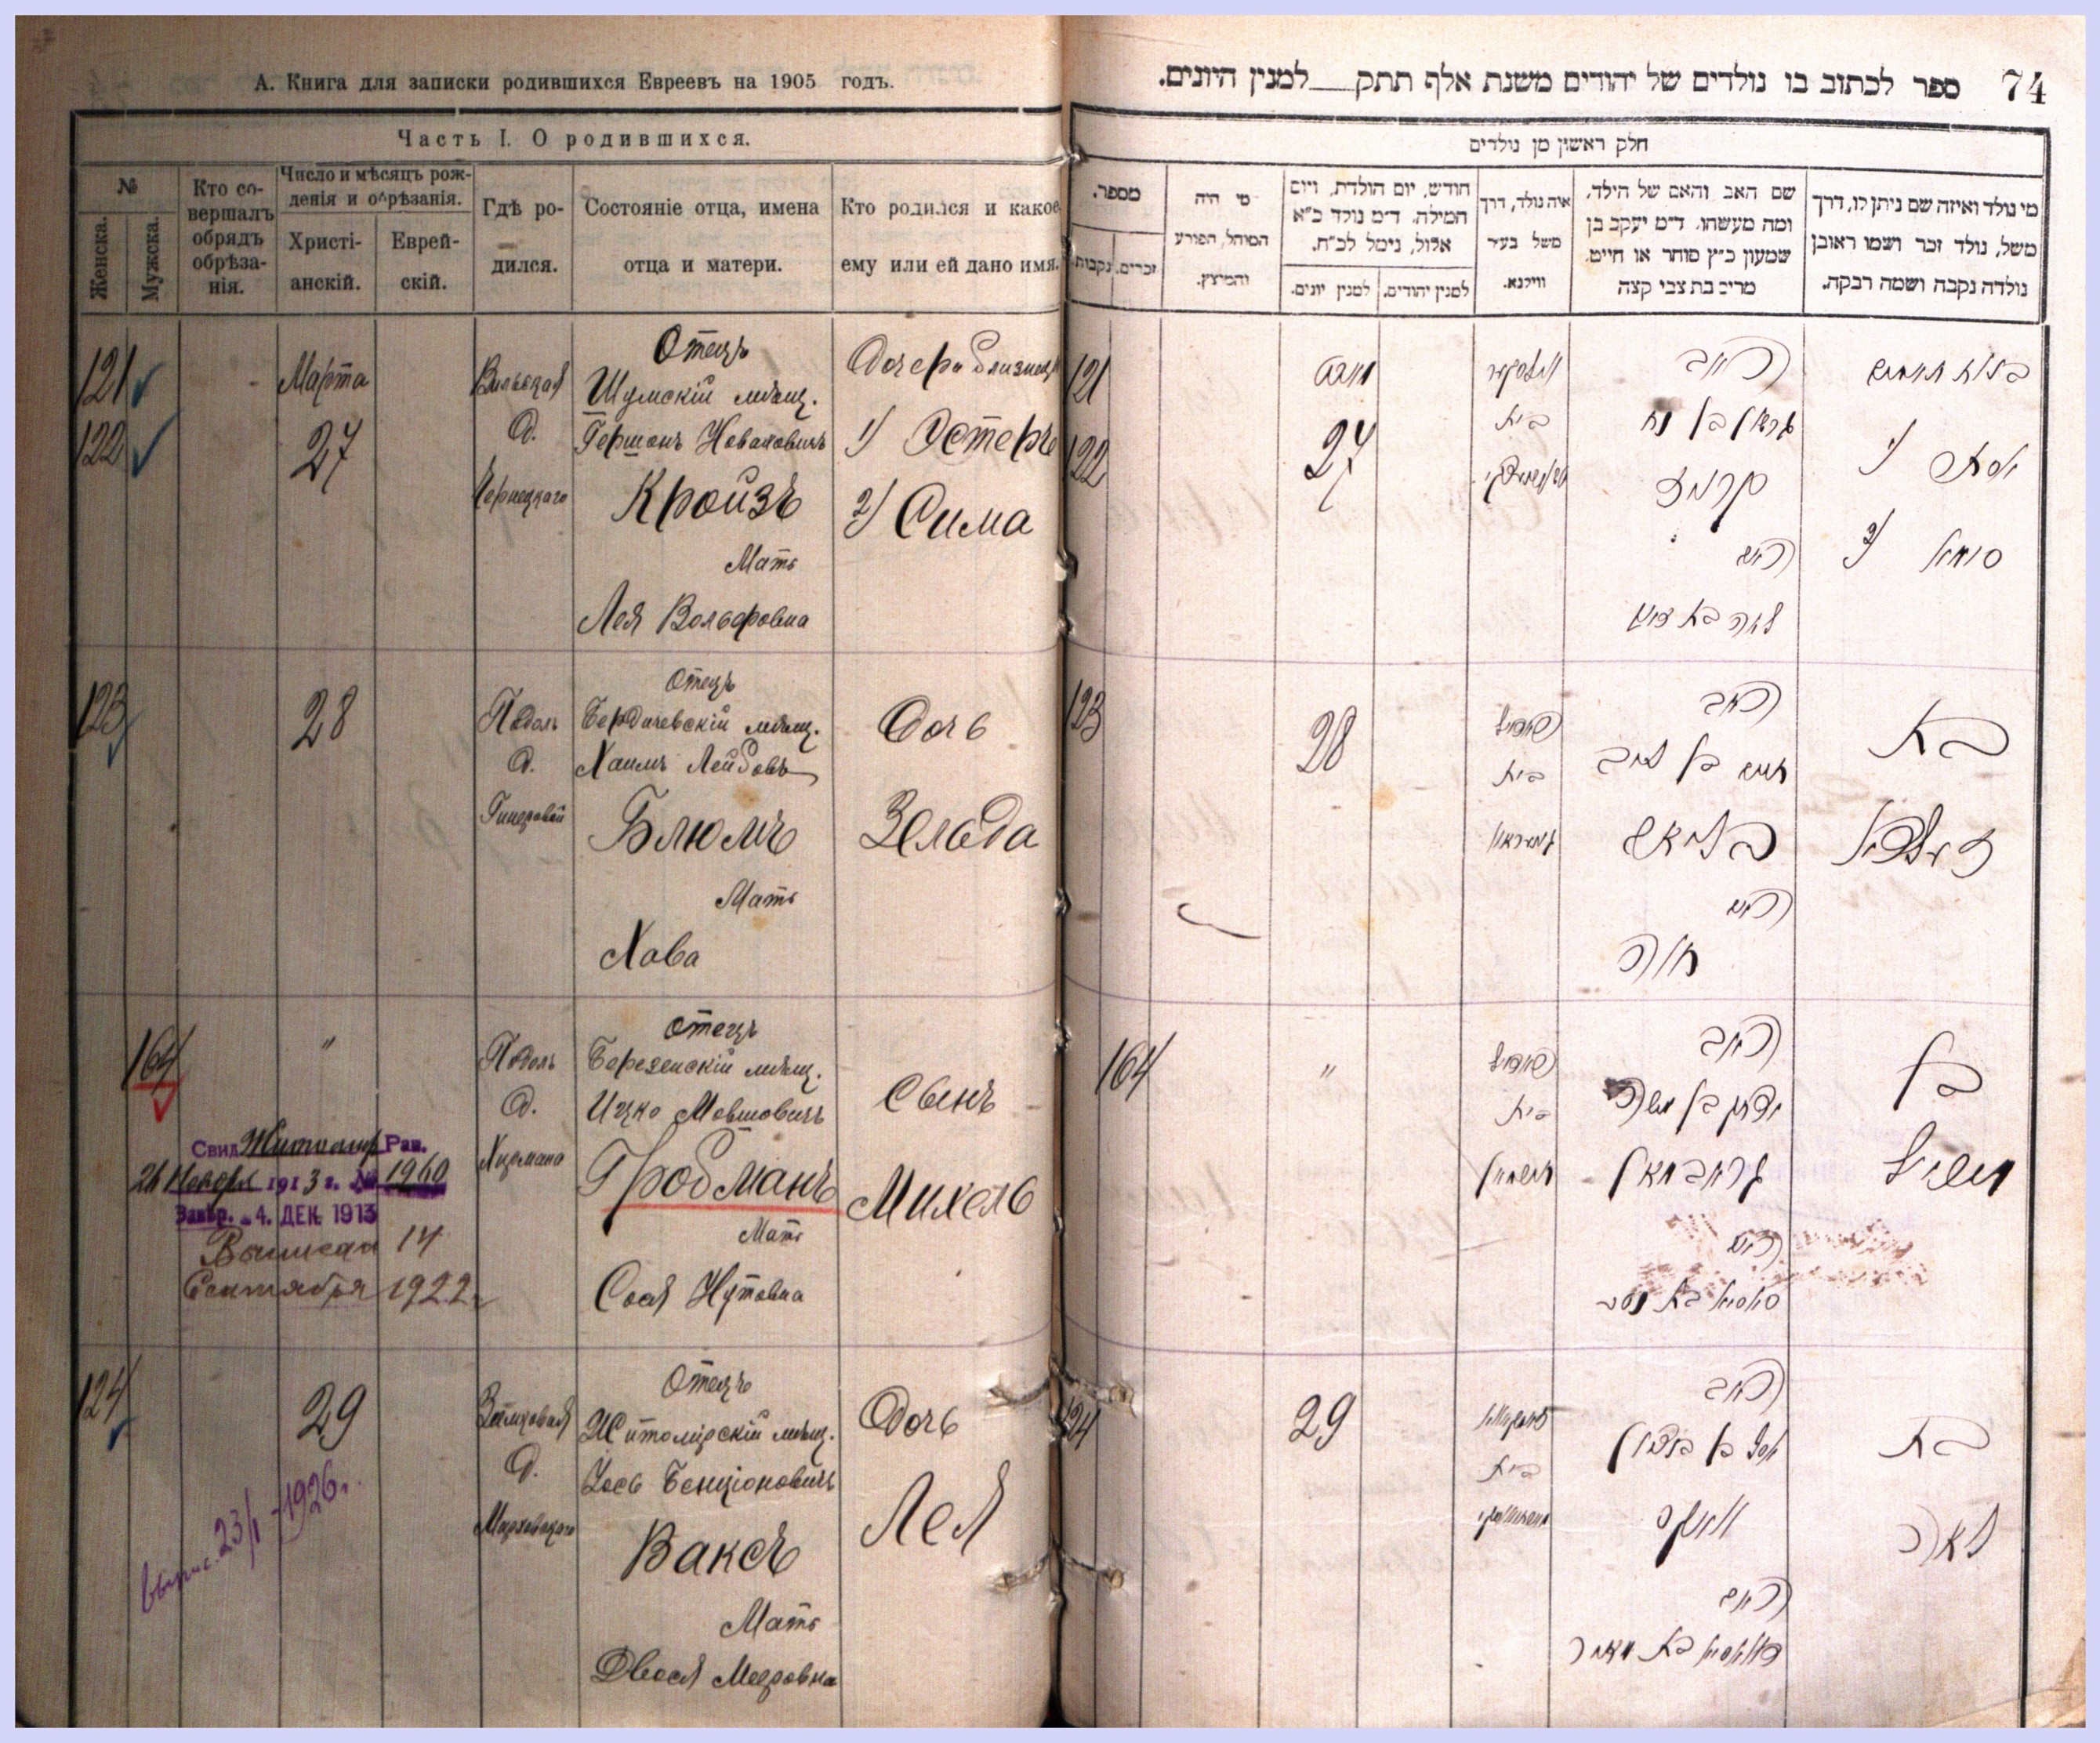 А. Книга для записки родившихся Евреевъ на 1905 годъ.
Часть I. О родившихся.
№
Женска.
Мужска.
Кто со-
вершалъ
обрядъ
обрѣза-
нія.
Число и мѣсяцъ рож-
денія и обрѣзанія.
Христі-
анскій.
Еврей-
скій.
Гдѣ ро-
дился.
Состояніе отца, имена
отца и матери.
Кто родился и какое
ему или ей дано имя.
121
122
Марта
27
Вильская
д.
Чернецкаго
Отецъ
Шумскій мѣщ.
Гершонъ
Кройзъ
Мать
Лея Вольфовна
Дочери близнецы
1) Эстеръ
2) Сима
123
28
Подоль
д.
Отецъ
Бердичевскій мѣщ.
Хаимъ Лейбовъ
Блюмъ
Мать
Хава
Дочь
Зельда
164
"
Подоль
д.
Отецъ
Березенскій мѣщ.
Ицко Мовшовичъ
Гробманъ
Мать
Сося Нутовна
Сынъ
Михель
Свид. Житомир. Рав.
26 Ноября 1913 г. № 1960
4. ДЕК 1913
Выписан 14
Сентября 1922 г.
124
29
д.
Отецъ
Житомірскій мѣщ.
Іось Бенціоновичъ
Ваксъ
Мать
Двося Мееровна
Дочь
Лея
выпис. 23/I - 1926 г.
74
ספר לכתוב בו נולדים של יהודים משנת אלף תתק למנין היונים.
חלק ראשון מן נולדים
מי נולד ואיזה שם ניתן לו, דרך
משל, נולד זכר ושמו ראובן
נולדה נקבה ושמה רבקה.
שם האב והאם של הילד,
ומה מעשהו. ד״מ יעקב בן
שמעון כ״ץ סוחר או חייט,
מרים בת צבי קצה
איה נולד, דרך
משל בעיר
ווילנא.
חודש, יום הולדת, ויום
המילה, ד״מ נולד כ״א
אלול, נימל לכ״ח.
למנין יהודים.
למנין יונים.
מי היה
המוהל, הפורע
והמוצץ.
מספר.
זכרים.
נקבות.
121
122
27
בית
האב
גרשון בן נח
קרויז
האם
לאה בת
1)
2)
123
28
בית
האב
חיים בן לייב
בליאם
האם
חוה
בת
זעלדא
164
"
בית
האב
יצחק בן משה
גראבמאן
האם
בן
מיכל
124
29
בית
האב
יוסל בן בנציון
וואקס
האם
בת
לאה